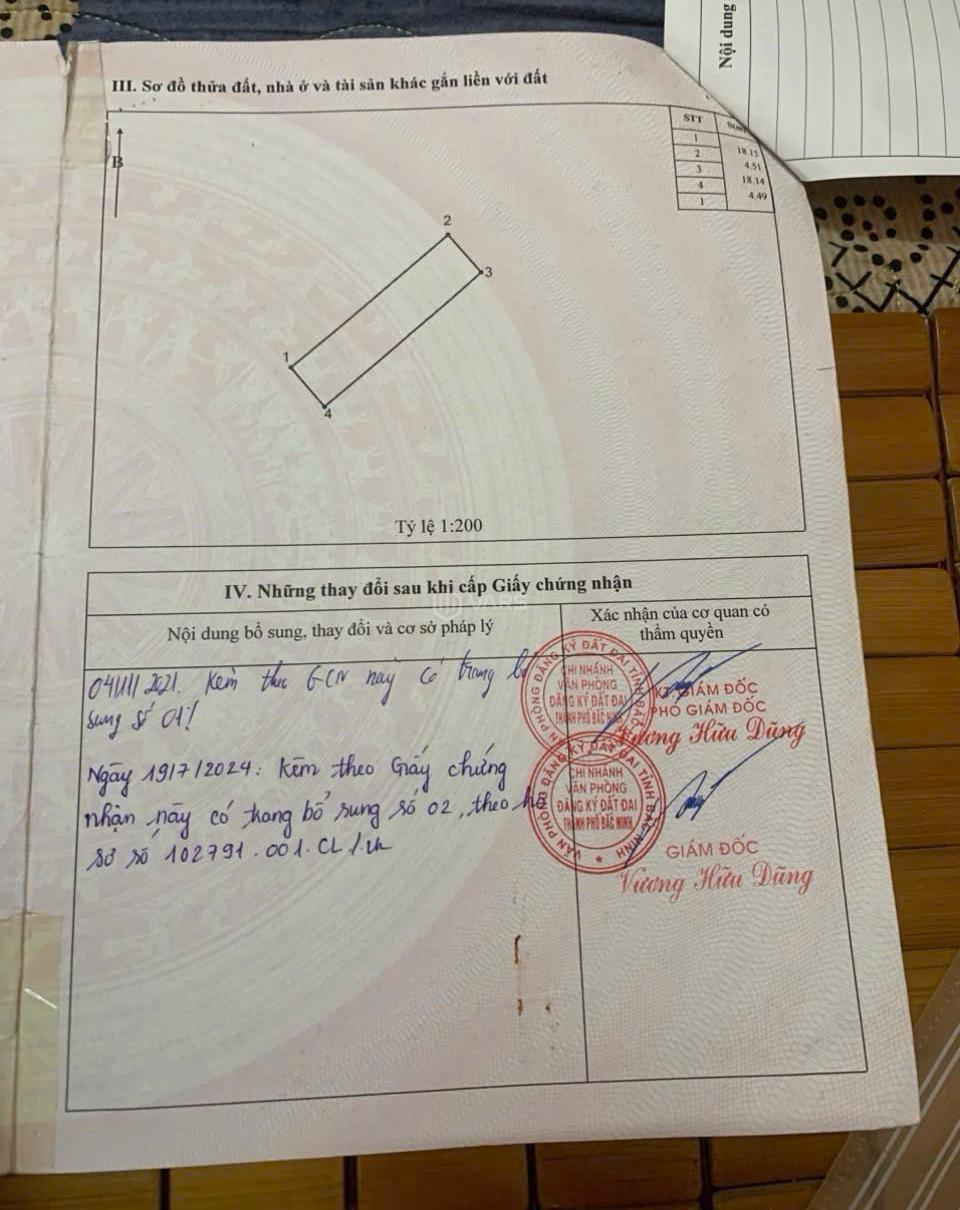 Nội dung
III. Sơ đồ thửa đất, nhà ở và tài sản khác gắn liền với đất
STT S(m)
1
18.15
2
4.51
3
18.14
4
4.49
1
B
2
3
1
4
Tỷ lệ 1:200
IV. Những thay đổi sau khi cấp Giấy chứng nhận
Nội dung bổ sung, thay đổi và cơ sở pháp lý
Xác nhận của cơ quan có
thẩm quyền
2021. Kèm theo GCN này có trang bổ
sung số 01!
Ngày 19/7/2024: Kèm theo Giấy chứng
nhận này có trang bổ sung số 02, theo hồ
sơ số 102791.001.CL
VĂN PHÒNG ĐĂNG KÝ ĐẤT ĐAI TỈNH BẮC
CHI NHÁNH
VĂN PHÒNG
ĐĂNG KÝ ĐẤT ĐAI
THÀNH PHỐ BẮC NINH
KT.GIÁM ĐỐC
PHÓ GIÁM ĐỐC
Vương Hữu Dũng
VĂN PHÒNG ĐĂNG KÝ ĐẤT ĐAI TỈNH BẮC NINH
CHI NHÁNH
VĂN PHÒNG
ĐĂNG KÝ ĐẤT ĐAI
THÀNH PHỐ BẮC NINH
GIÁM ĐỐC
Vương Hữu Dũng